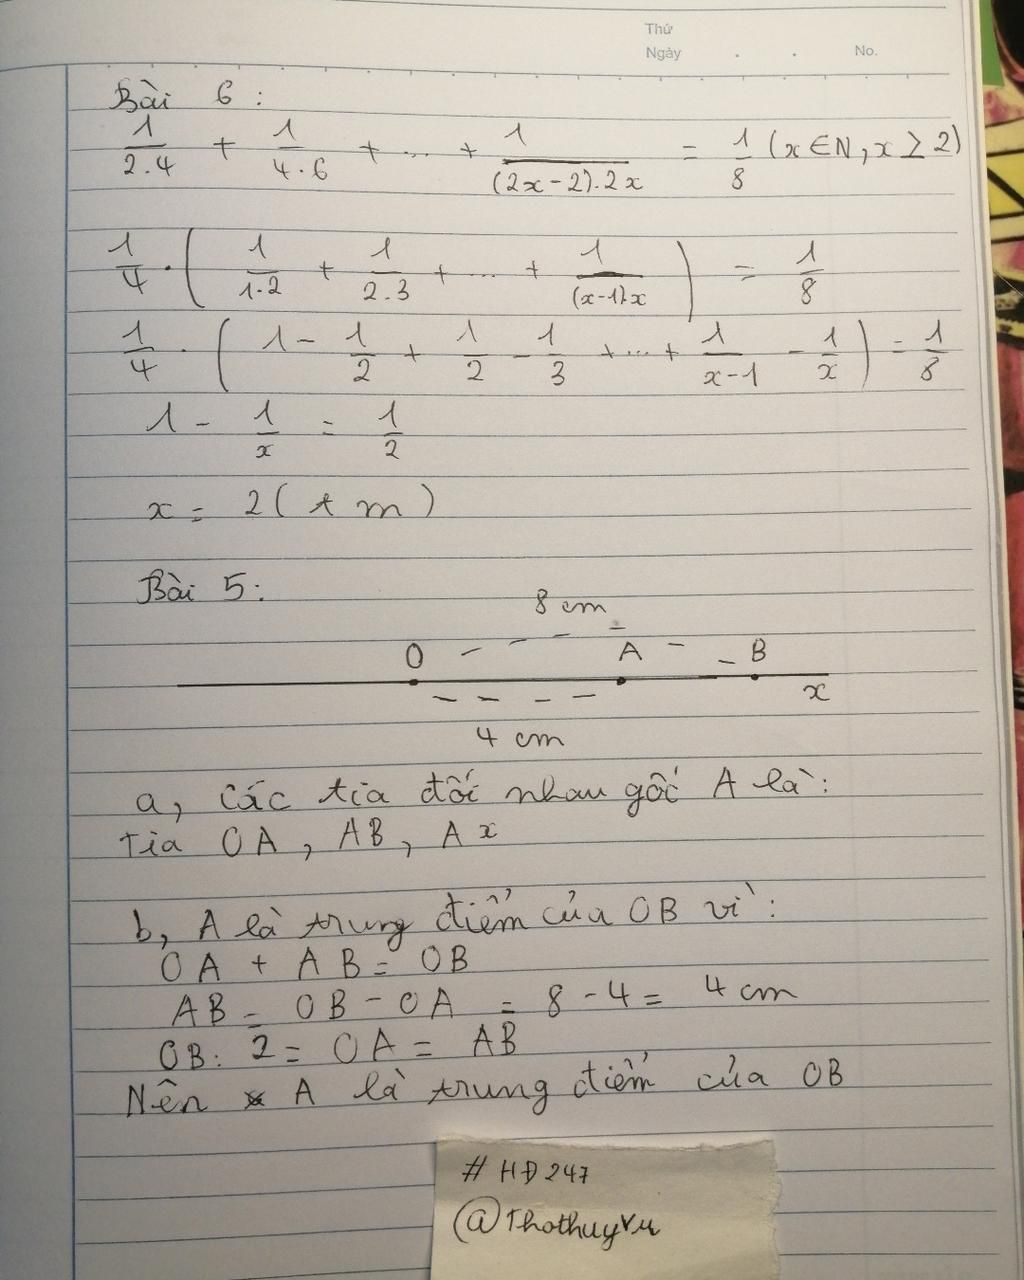 Thứ
Ngày . . No.
Bài 6 :
1/2.4 + 1/4.6 + ... + 1/(2x-2).2x = 1/8 (x ∈ N, x ≥ 2)
1/4 . ( 1/1.2 + 1/2.3 + ... + 1/(x-1).x ) = 1/8
1/4 . ( 1 - 1/2 + 1/2 - 1/3 + ... + 1/x-1 - 1/x ) = 1/8
1 - 1/x = 1/2
x = 2 (tm)
Bài 5 :
8 cm
O A B
x
4 cm
a, Các tia đối nhau gốc A là :
Tia OA, AB, Ax
b, A là trung điểm của OB vì :
OA + AB = OB
AB = OB - OA = 8 - 4 = 4 cm
OB : 2 = OA = AB
Nên A là trung điểm của OB
# HĐ247
@Thothuyvu